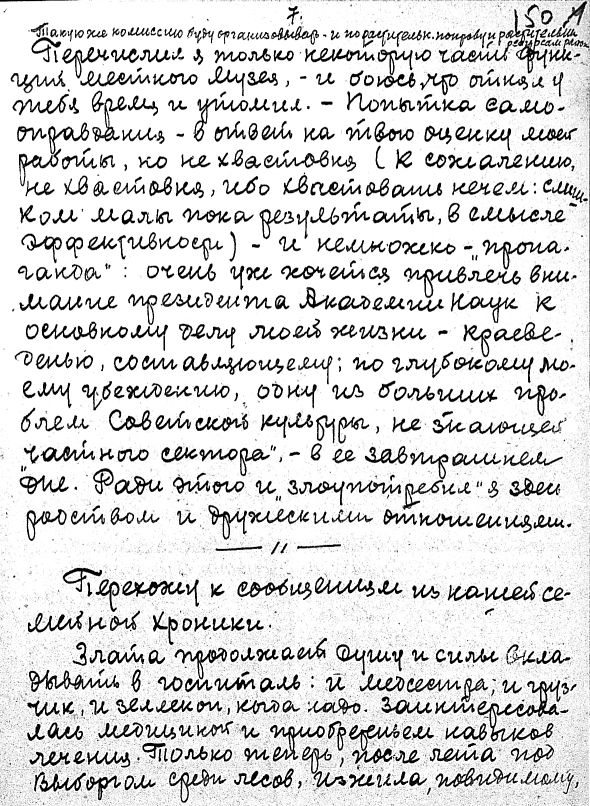 7.
150 А
Такую же комиссию буду организовывать - и по растительн. покрову и растительн.
ресурсам
Перечислил я только некоторую часть функ-
ций местного музея, - и боюсь, что отнял у
тебя время и утомил. - Попытка само-
оправдания - в ответ на твою оценку моей
работы, но не хвастовня (к сожалению,
не хвастовня, ибо хвастовать нечем: слиш-
ком малы пока результаты, в смысле
эффективности) - и немножко - "пропа-
ганда": очень уже хочется привлечь вни-
мание президента Академии Наук к
основному делу моей жизни - краеве-
денью, составляющему, по глубокому мо-
ему убеждению, одну из больших про-
блем Советской культуры, не знающей
"частного сектора", - в ее завтрашнем
дне. Ради этого и "злоупотребил" я здесь
родством и дружескими отношениями.
— " —
Перехожу к сообщениям из нашей се-
мейной хроники.
Злата продолжает душу и силы вкла-
дывать в госпиталь: и медсестра, и груз-
чик, и землекоп, когда надо. Заинтересова-
лась медициной и приобретеньем навыков
лечения. Только теперь, после лета под
Выборгом среди лесов, изжила, повидимому,